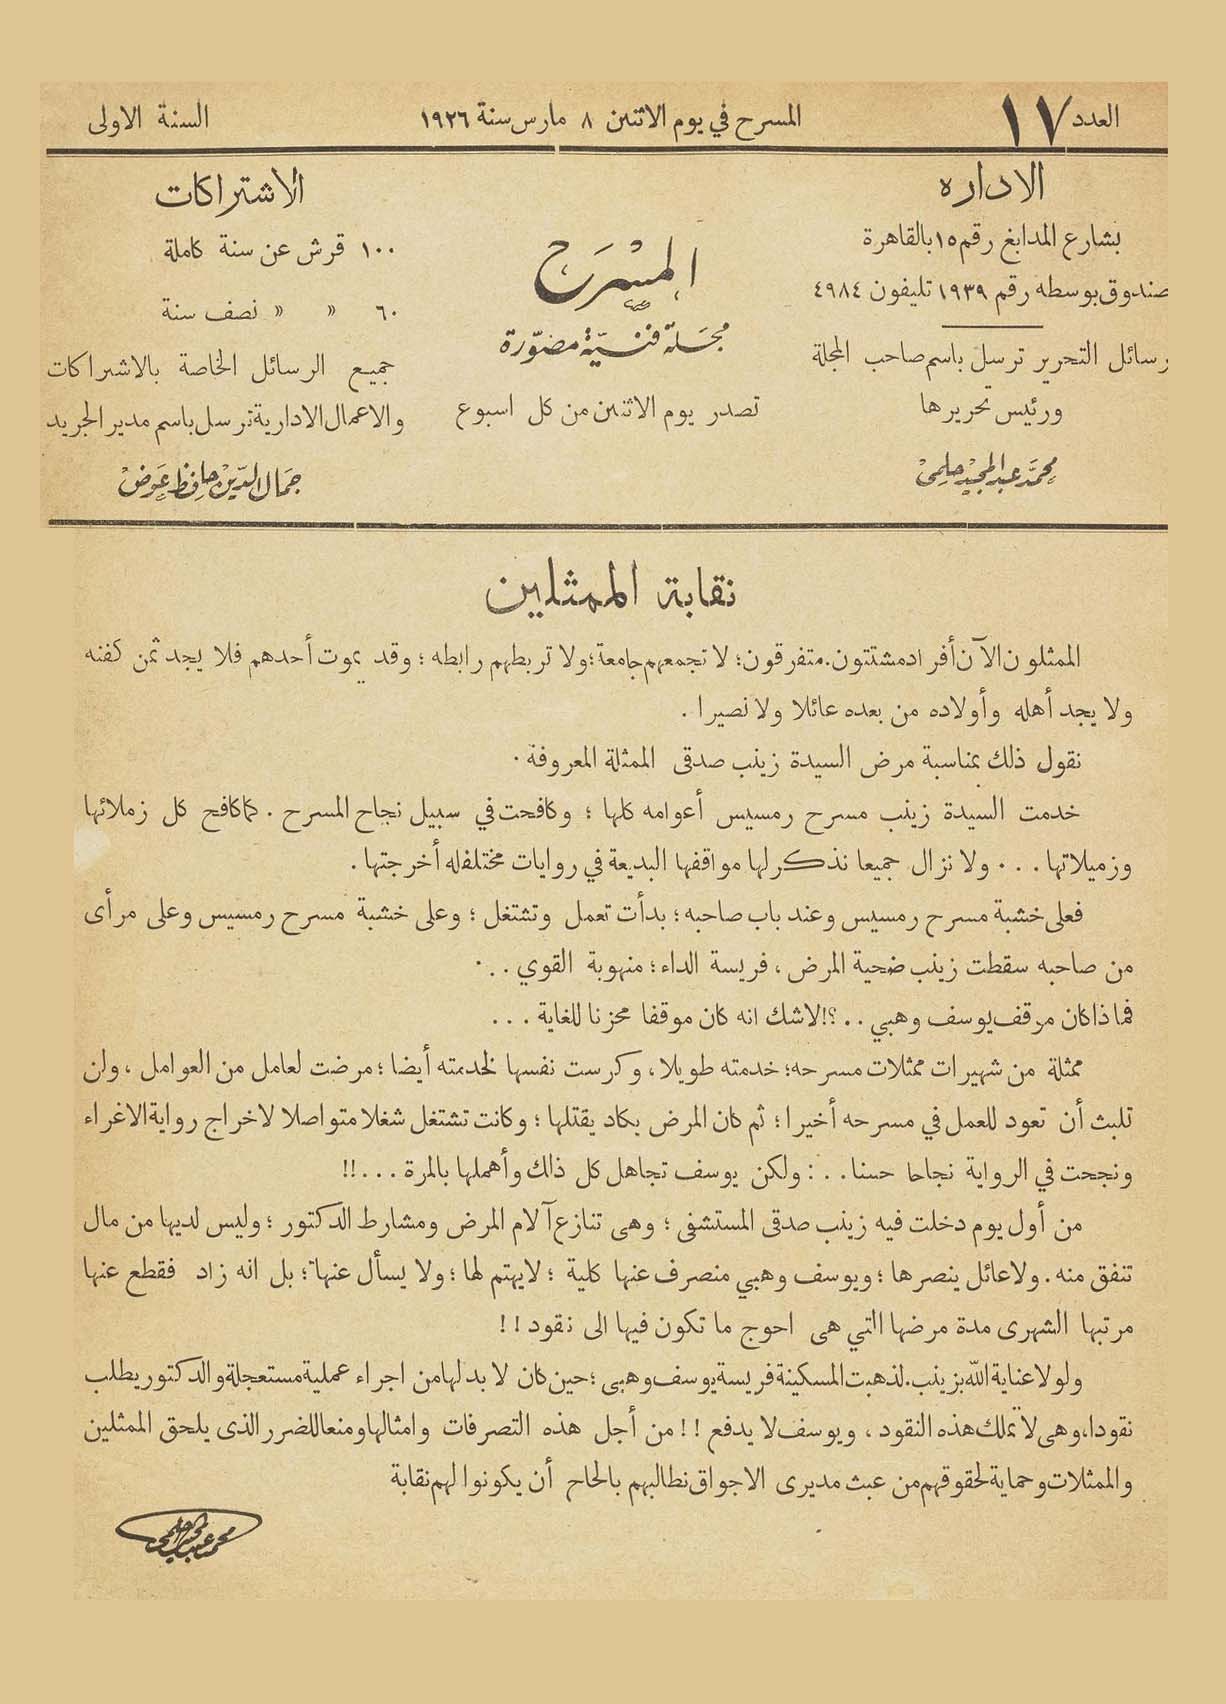 العدد ١٧
المسرح في يوم الاثنين ٨ مارس سنة ١٩٢٦
السنة الاولى
الاداره
بشارع المدابغ رقم ١٥ بالقاهرة
صندوق بوسطه رقم ١٩٣٩ تليفون ٤٩٨٤
رسائل التحرير ترسل باسم صاحب المجلة
ورئيس تحريرها
محمد عبد المجيد حلمي
المسرح
مجلة فنية مصورة
تصدر يوم الاثنين من كل اسبوع
الاشتراكات
١٠٠ قرش عن سنة كاملة
٦٠ » » نصف سنة
جميع الرسائل الخاصة بالاشتراكات
والاعمال الادارية ترسل باسم مدير الجريد
جمال الدين حافظ عوض
نقابة الممثلين
الممثلون الآن أفراد مشتتون. متفرقون؛ لا تجمعهم جامعة؛ ولا تربطهم رابطه ؛ وقد يموت أحدهم فلا يجد ثمن كفنه
ولا يجد أهله وأولاده من بعده عائلا ولا نصيرا .
نقول ذلك بمناسبة مرض السيدة زينب صدقى الممثلة المعروفة .
خدمت السيدة زينب مسرح رمسيس أعوامه كلها ؛ وكافحت في سبيل نجاح المسرح . كما كافح كل زملائها
وزميلاتها . . . ولا نزال جميعا نذكر لها مواقفها البديعة في روايات مختلفه أخرجتها .
فعلى خشبة مسرح رمسيس وعند باب صاحبه ؛ بدأت تعمل وتشتغل ؛ وعلى خشبة مسرح رمسيس وعلى مرأى
من صاحبه سقطت زينب ضحية المرض ، فريسة الداء ؛ منهوبة القوي . . .
فماذا كان موقف يوسف وهبي . . ؟! لاشك انه كان موقفا محزنا للغاية . . .
ممثلة من شهيرات ممثلات مسرحه ؛ خدمته طويلا ، وكرست نفسها لخدمته أيضا ؛ مرضت لعامل من العوامل ، ولن
تلبث أن تعود للعمل في مسرحه أخيرا ؛ ثم كان المرض يكاد يقتلها ؛ وكانت تشتغل شغلا متواصلا لاخراج رواية الاغراء
ونجحت في الرواية نجاحا حسنا . . : ولكن يوسف تجاهل كل ذلك وأهملها بالمرة . . . !!
من أول يوم دخلت فيه زينب صدقى المستشفى ؛ وهى تنازع آلام المرض ومشارط الدكتور ؛ وليس لديها من مال
تنفق منه . ولا عائل ينصرها ؛ ويوسف وهبي منصرف عنها كلية ؛ لا يهتم لها ؛ ولا يسأل عنها ؛ بل انه زاد فقطع عنها
مرتبها الشهرى مدة مرضها التي هى احوج ما تكون فيها الى نقود ! !
ولولا عناية الله بزينب. لذهبت المسكينة فريسة يوسف وهبى ؛ حين كان لا بد لها من اجراء عملية مستعجلة والدكتور يطلب
نقودا ، وهى لا تملك هذه النقود ، ويوسف لا يدفع ! ! من أجل هذه التصرفات وامثالها ومنعا للضرر الذى يلحق الممثلين
والممثلات وحماية لحقوقهم من عبث مديرى الاجواق نطالبهم بالحاح أن يكونوا لهم نقابة
محمد عبد المجيد حلمي